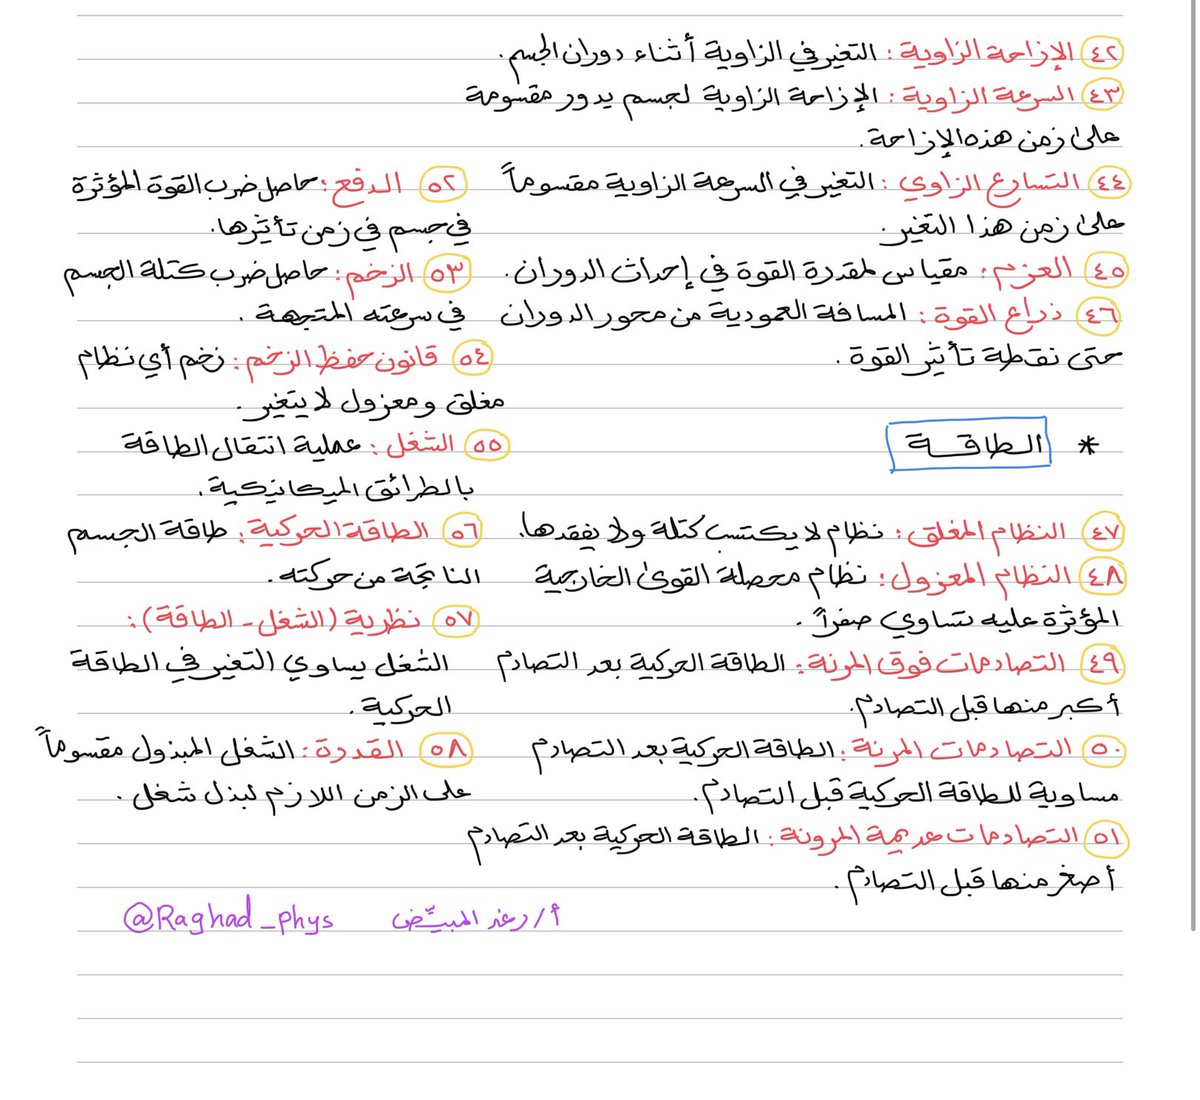 ٤٢ الإزاحة الزاوية : التغير في الزاوية أثناء دوران الجسم.
٤٣ السرعة الزاوية : الإزاحة الزاوية لجسم يدور مقسومة
على زمن هذه الإزاحة.
٤٤ التسارع الزاوي : التغير في السرعة الزاوية مقسوماً
على زمن هذا التغير.
٤٥ العزم : مقياس لمقدرة القوة في إحداث الدوران.
٤٦ ذراع القوة : المسافة العمودية من محور الدوران
حتى نقطة تأثير القوة.
* الطاقة
٤٧ النظام المغلق : نظام لا يكتسب كتلة ولا يفقدها.
٤٨ النظام المعزول : نظام محصلة القوى الخارجية
المؤثرة عليه تساوي صفراً.
٤٩ التصادمات فوق المرنة : الطاقة الحركية بعد التصادم
أكبر منها قبل التصادم.
٥٠ التصادمات المرنة : الطاقة الحركية بعد التصادم
مساوية للطاقة الحركية قبل التصادم.
٥١ التصادمات عديمة المرونة : الطاقة الحركية بعد التصادم
أصغر منها قبل التصادم.
٥٢ الدفع : حاصل ضرب القوة المؤثرة
في جسم في زمن تأثيرها.
٥٣ الزخم : حاصل ضرب كتلة الجسم
في سرعته المتجهة.
٥٤ قانون حفظ الزخم : زخم أي نظام
مغلق ومعزول لا يتغير.
٥٥ الشغل : عملية انتقال الطاقة
بالطرائق الميكانيكية.
٥٦ الطاقة الحركية : طاقة الجسم
الناتجة من حركته.
٥٧ نظرية (الشغل - الطاقة) :
الشغل يساوي التغير في الطاقة
الحركية.
٥٨ القدرة : الشغل المبذول مقسوماً
على الزمن اللازم لبذل شغل.
أ/رغد المبيّض @Raghad_phys